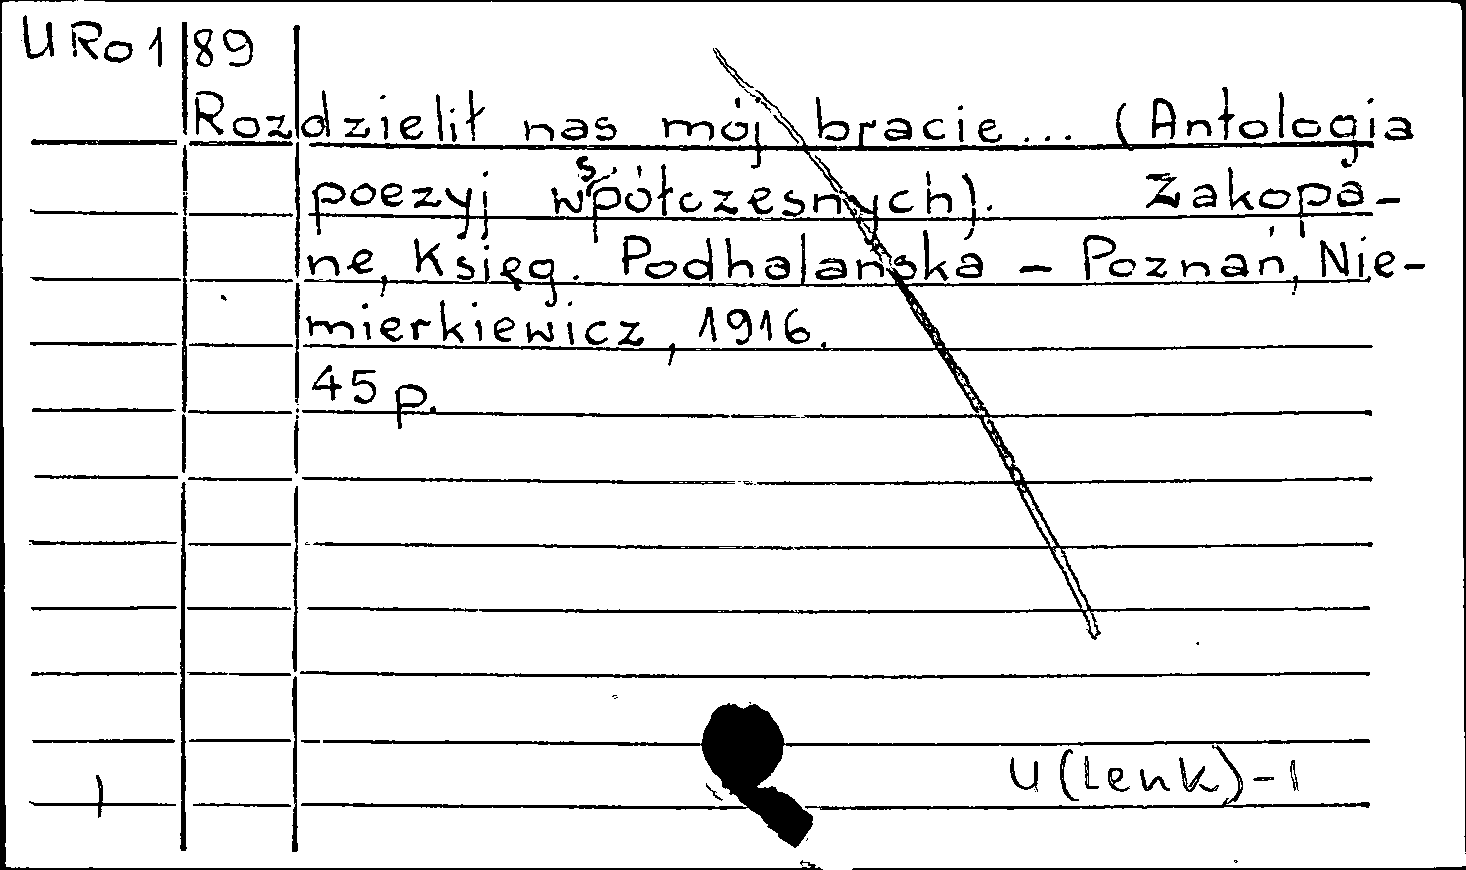 URo1 89
Rozdzielił nas mój bracie... (Antologia
poezyj współczesnych). Zakopa-
ne, Księg. Podhalańska - Poznań, Nie-
mierkiewicz, 1916.
45 p.
U (Lenk) - 1